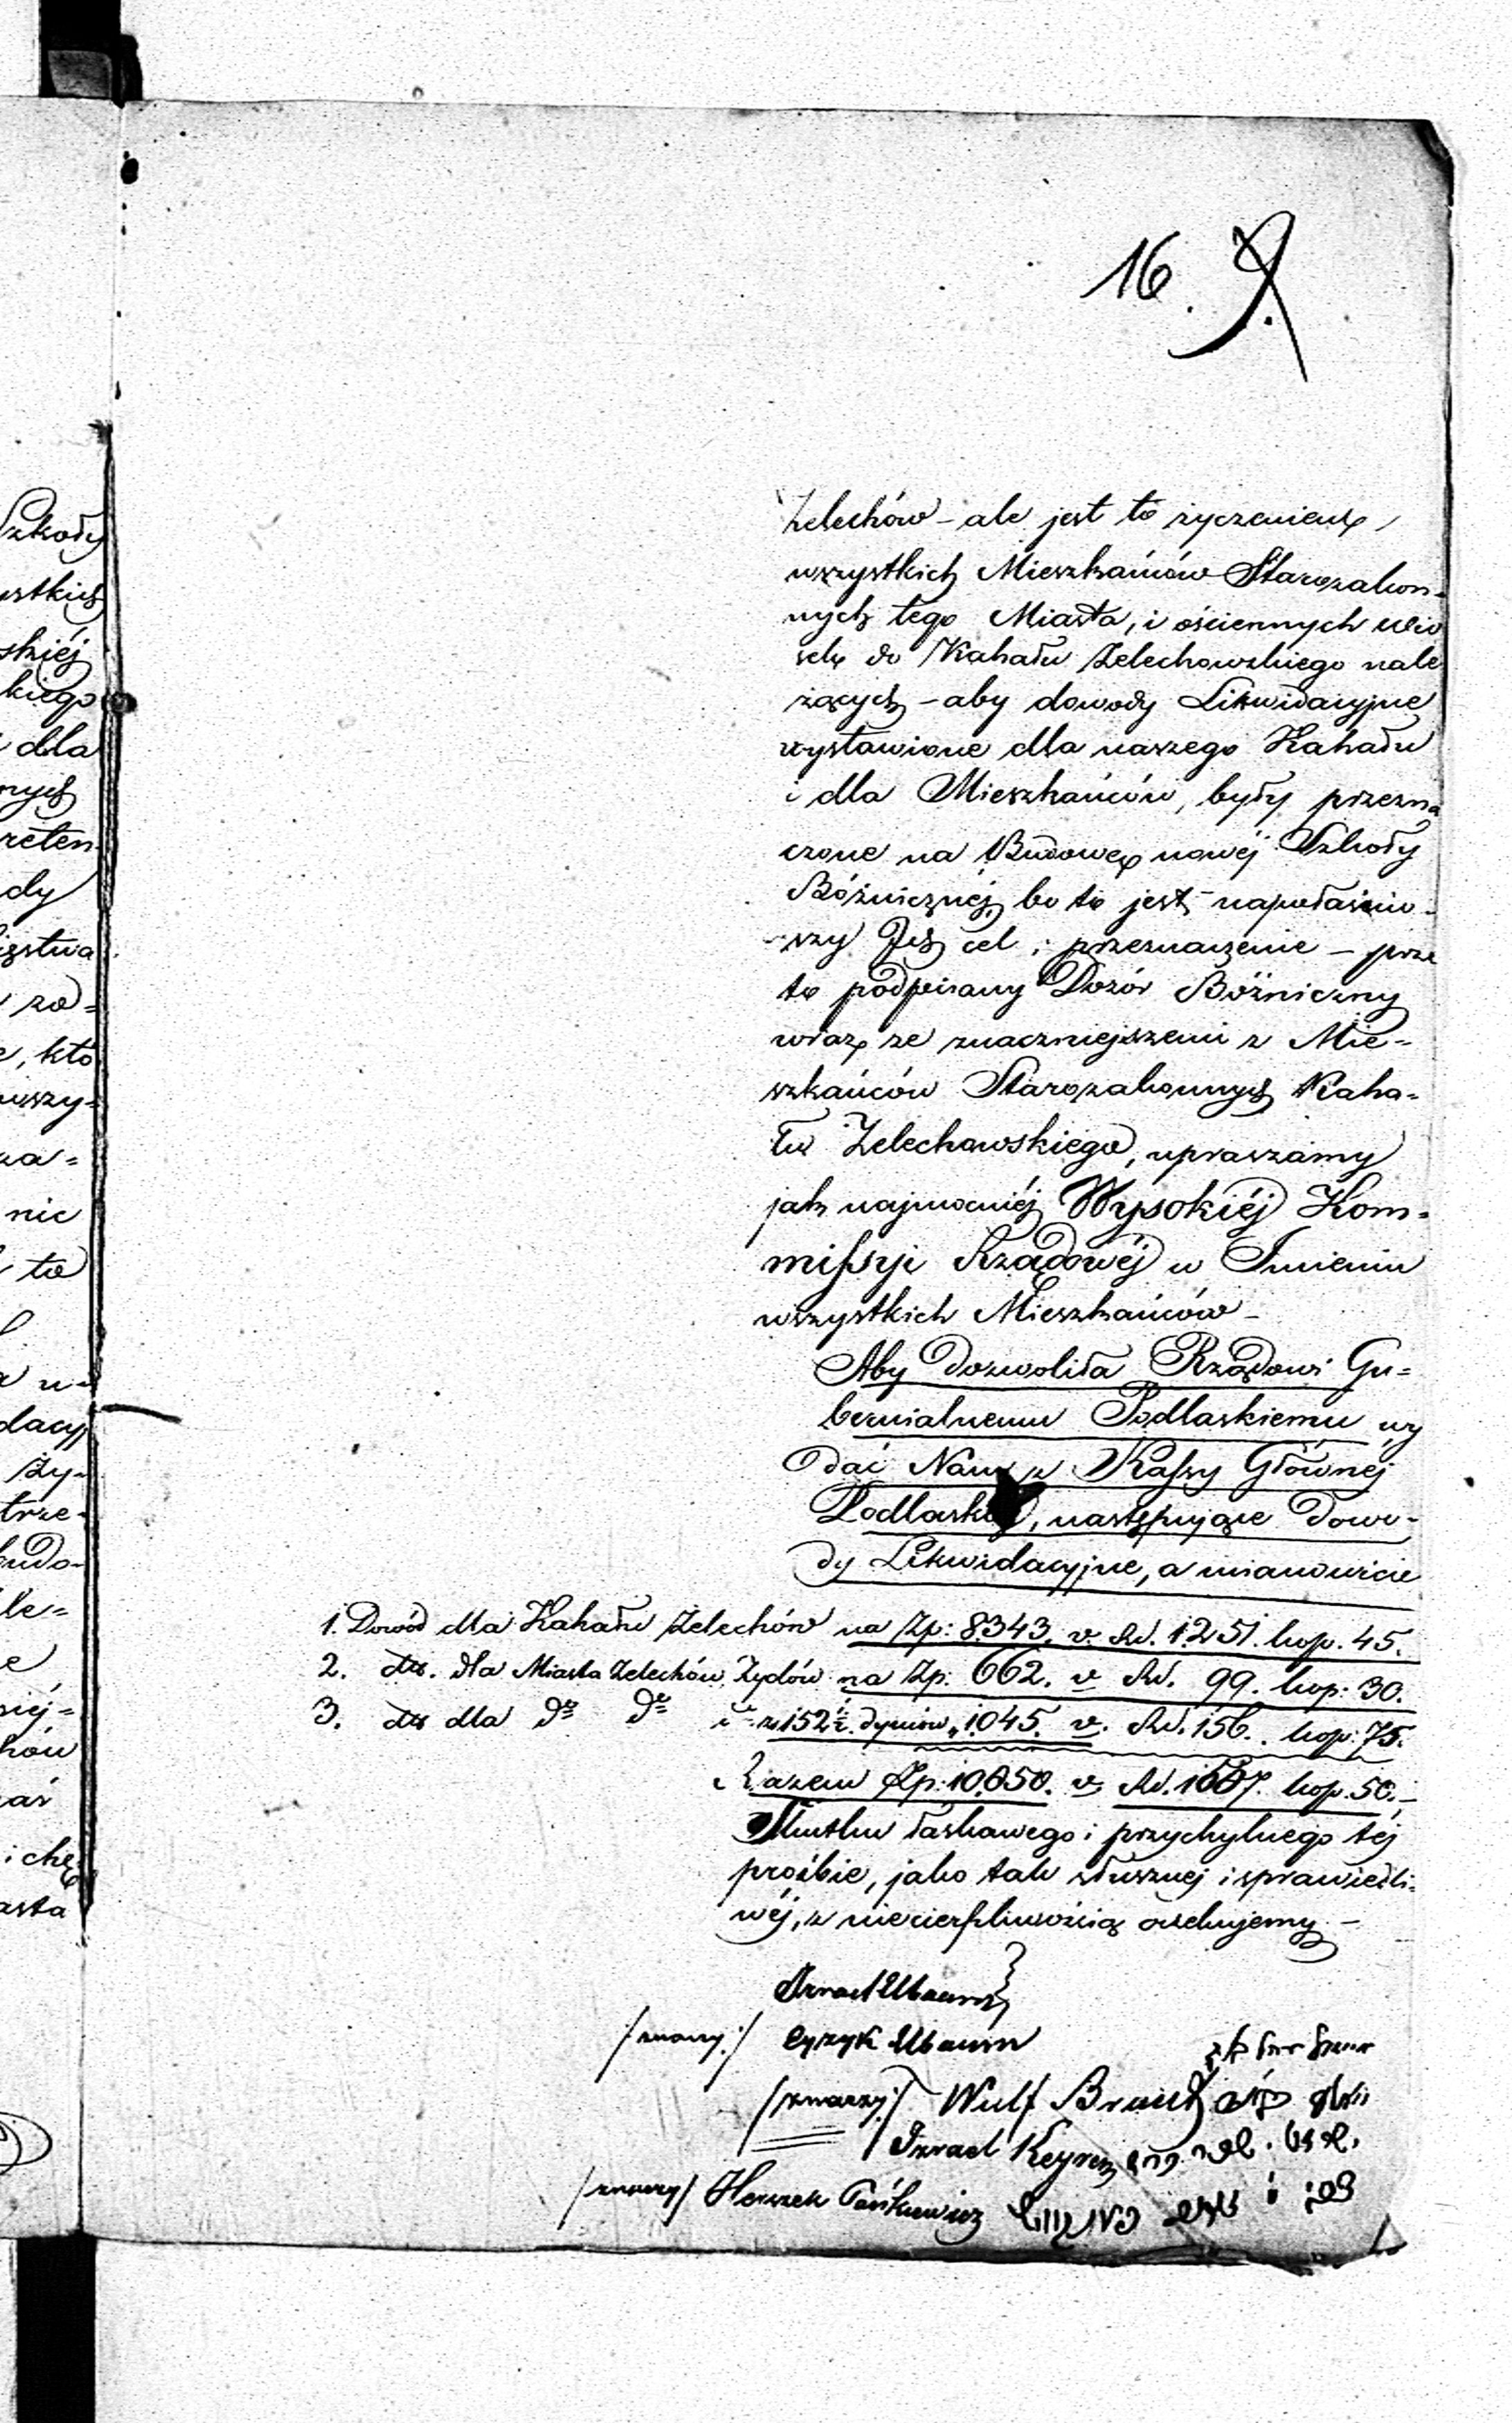 16.
Żelechów – ale jest to życzeniem
wszystkich Mieszkańców Starozakon-
nych tego Miasta, i ościennych wio
sek do Kahału Żelechowskiego nale
żących – aby dowody Likwidacyjne
wystawione dla naszego Kahału
i dla Mieszkańców, były przezna
czone na Budowę nowéj Szkoły
Bóżnicznéj, bo to jest najwłaściw-
szy Ich cel i przeznaczenie – prze
to podpisany Dozór Bóżniczny
wraz ze znaczniejszemi z Mie-
szkańców Starozakonnych Kaha-
łu Żelechowskiego, upraszamy
jak najmocniéj Wysokiéj Kom-
missyi Rządowéj w Imieniu
wszystkich Mieszkańców –
Aby dozwoliła Rządowi Gu-
bernialnemu Podlaskiemu wy
dać Nam z Kassy Głównéj
Podlaskiéj, następujące Dowo-
dy Likwidacyjne, a mianowicie
1. Dowód dla Kahału Żelechów na Zp: 8343. v. Rs. 1251. kop. 45.
2. dto. dla Miasta Żelechów Żydów na Zp. 662. v. Rs. 99. kop: 30.
3. dto dla do do z 152 dymów 1045. v. Rs. 156. kop: 75.
Razem Zp: 10,050. v. Rs. 1507. kop. 50.–
Skutku łaskawego i przychylnego téj
prośbie, jako tak słusznej i sprawiedli-
wéj, z niecierpliwością oczekujemy –
Izrael Elbaum
Eyzyk Elbaum
Wulf
Izrael
Herszek